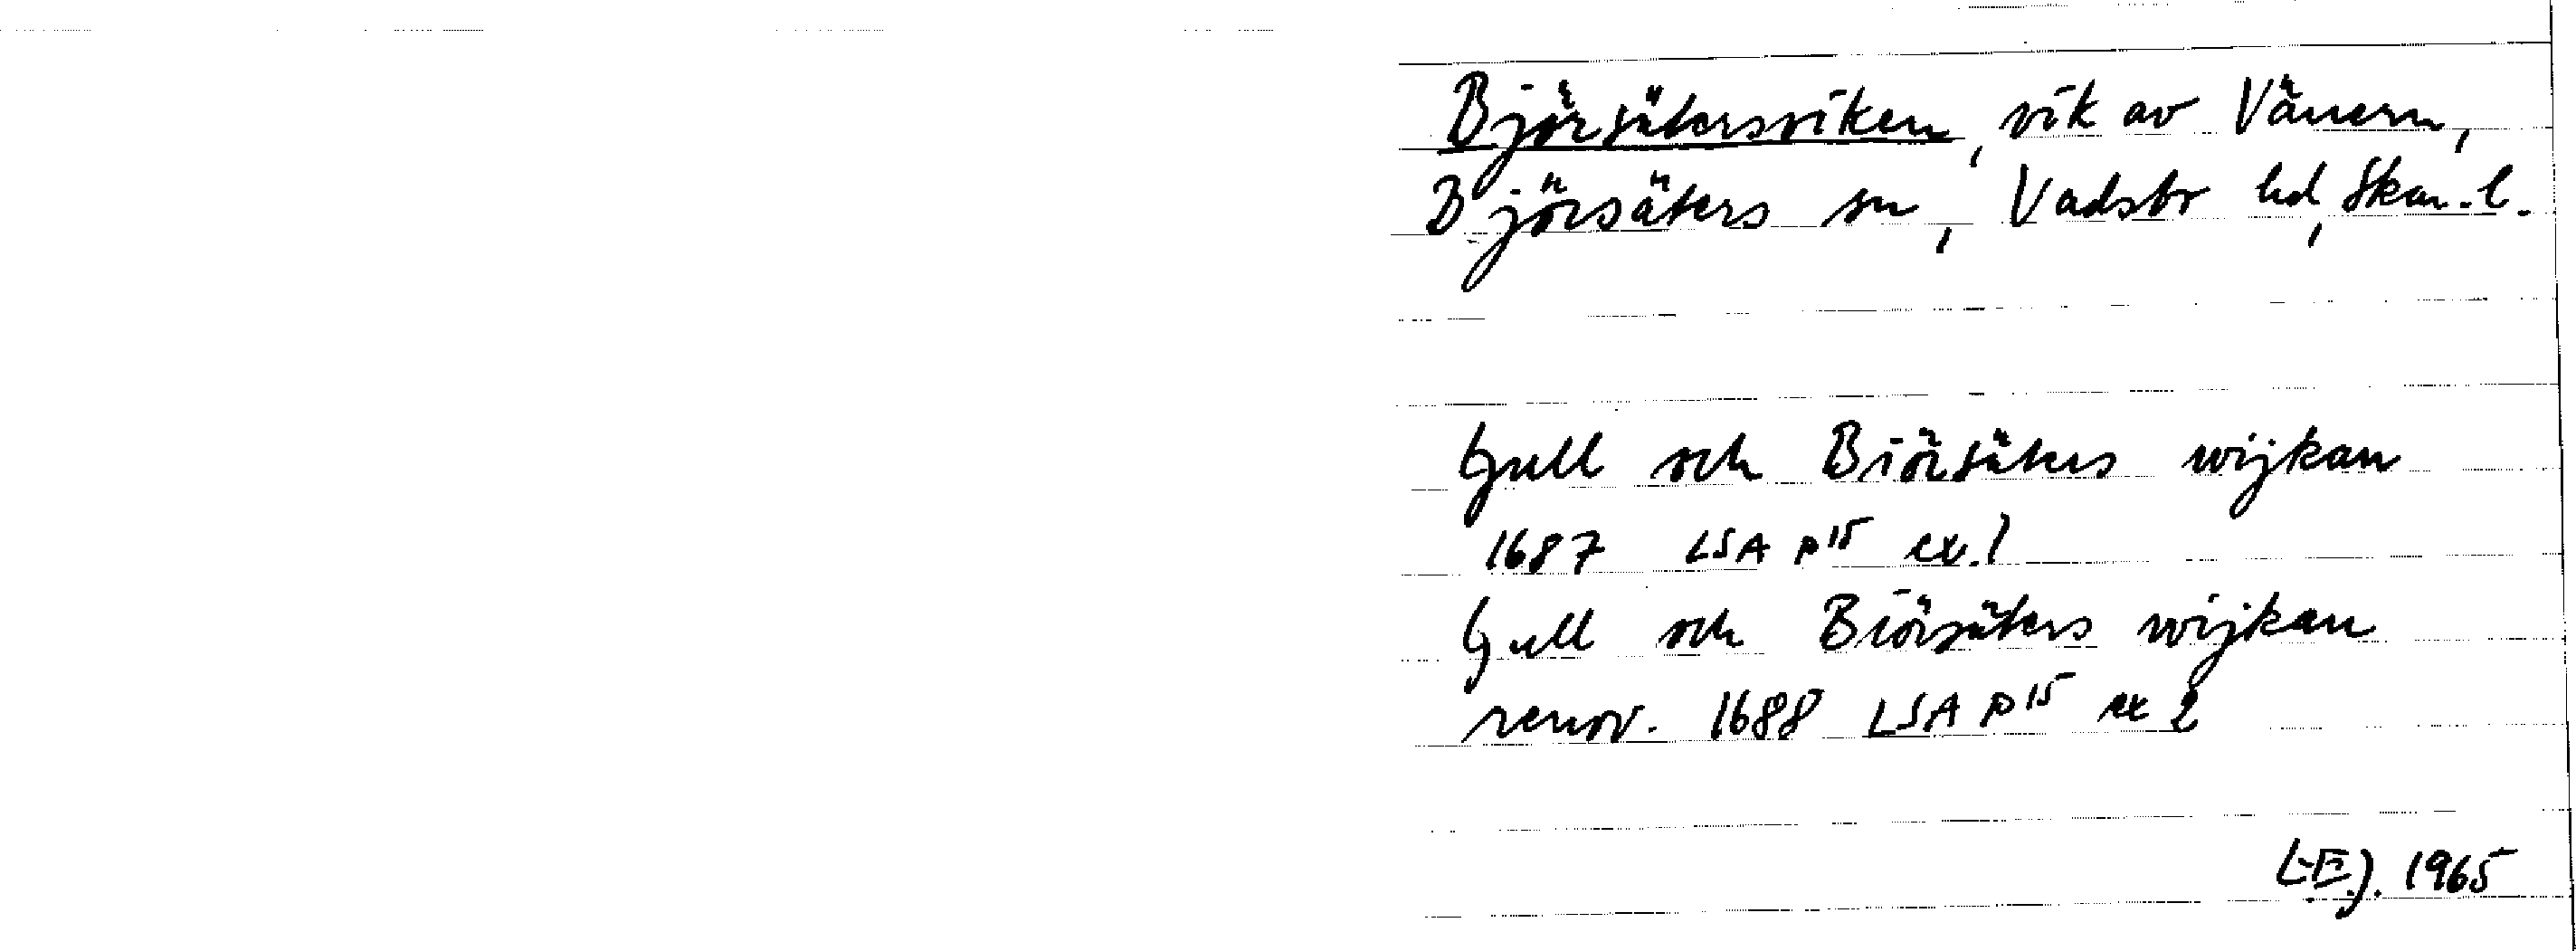 Björsätersviken, vik av Vänern,
Björsäters sn, Vadsbr hd, Skar. l.
Gull och Biörsäters wijkan
1687 LSA P15 ex. 1
Gull och Biörsäters wijkan
renov. 1688 LSA P15 ex 2
L-E.J. 1965